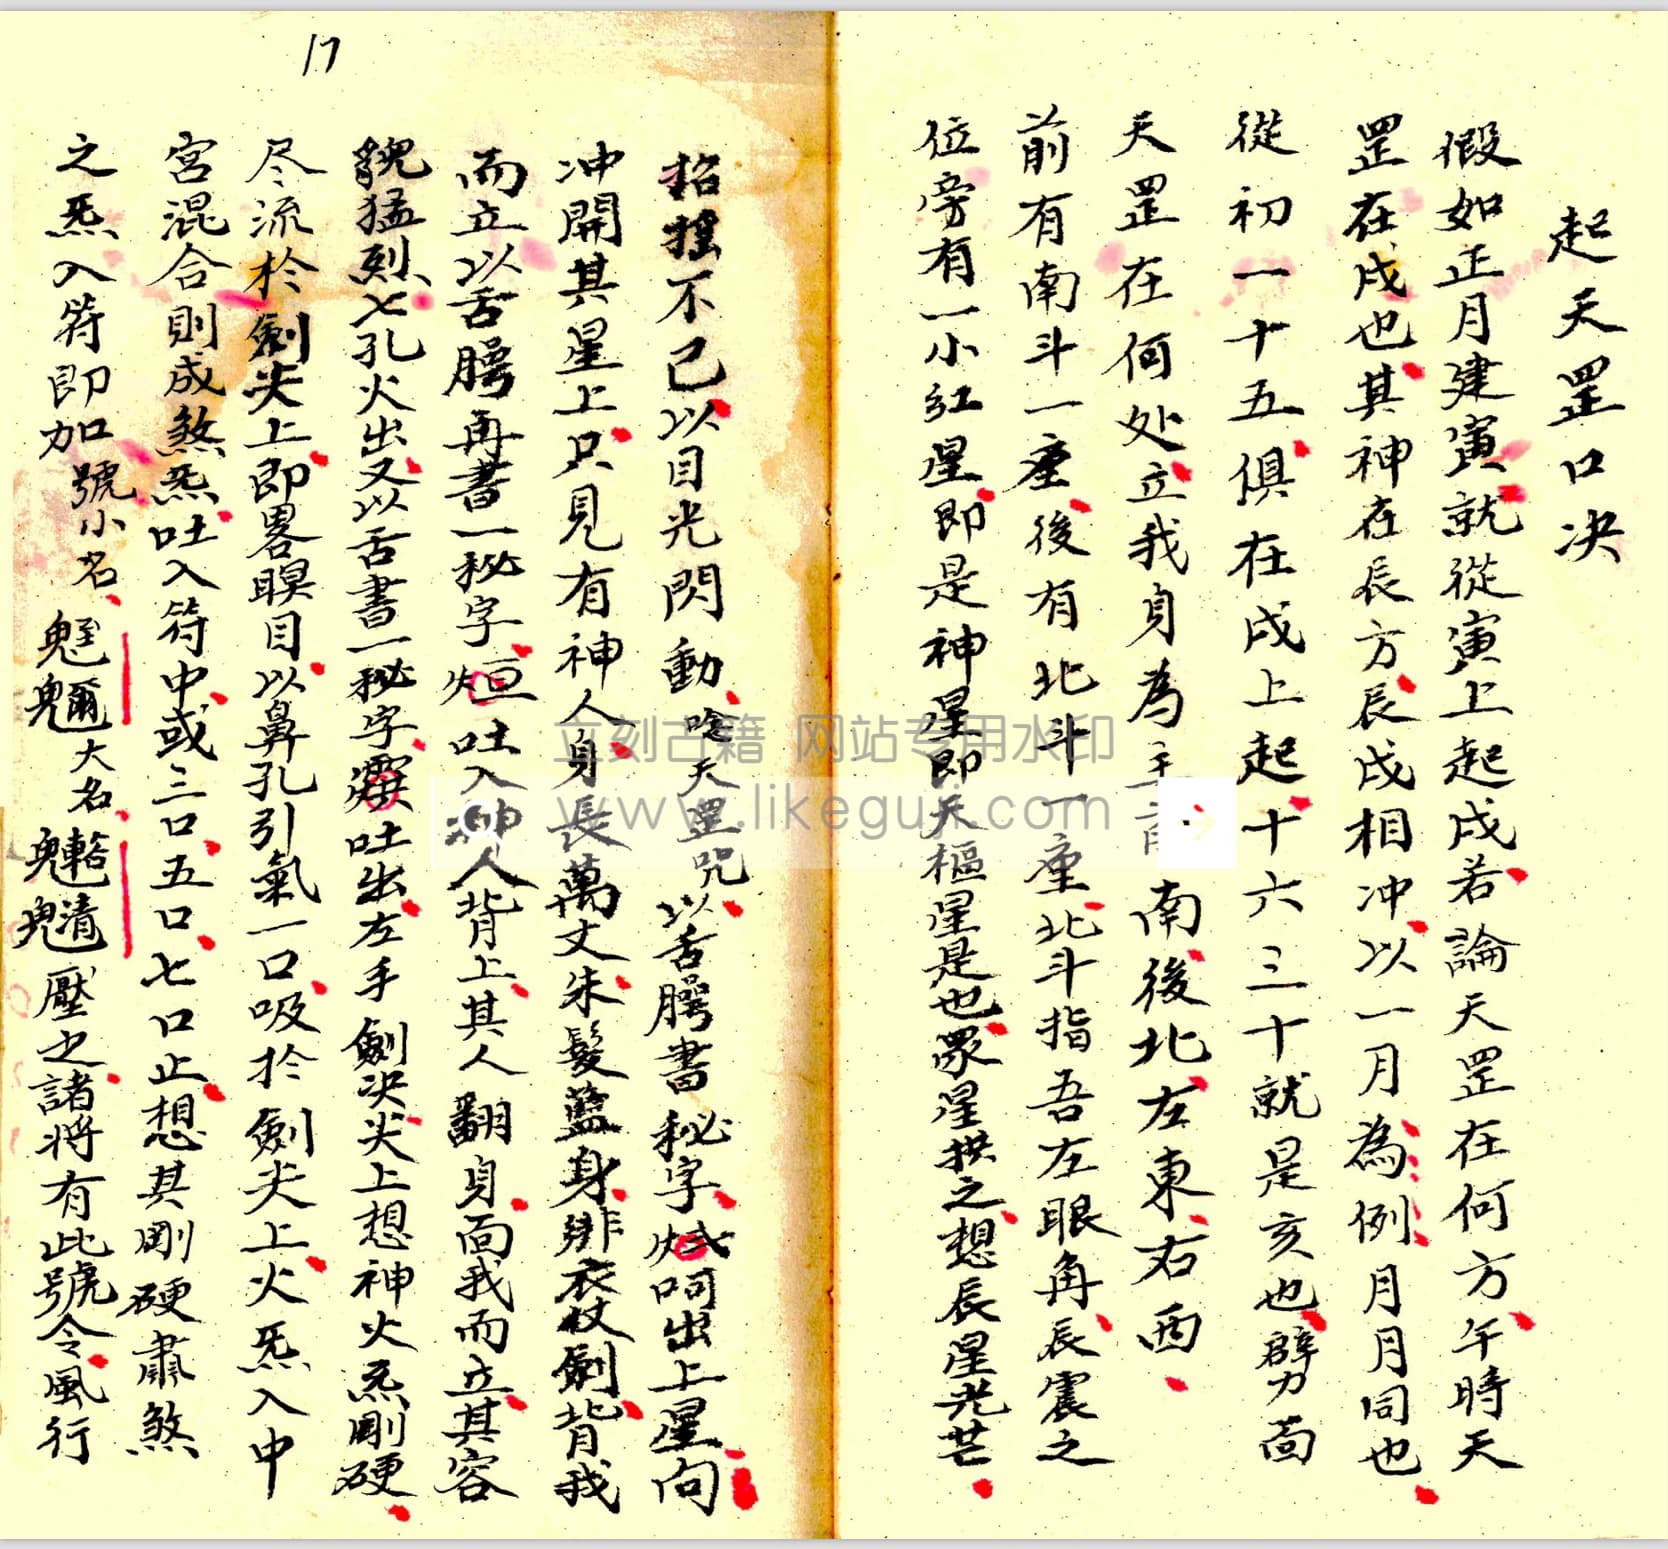 起天罡口决
假如正月建寅就從寅上起戌若論天罡在何方午時天
罡在戌也其神在辰方辰戌相冲以一月為例月月同也
從初一十五俱在戌上起十六三十就是亥也劈面
天罡在何处立我身為主前南後北左東右西
前有南斗一座後有北斗一座北斗指吾左眼角辰震之
位旁有一小紅星即是神星即天樞星是也眾星拱之想辰星光芒
17
招摇不已以目光閃動唸天罡咒以舌腭書秘字呵出上星向
冲開其星上只見有神人身長萬丈朱髮藍身緋衣仗劍背我
而立以舌腭再書一秘字烜吐入神人背上其人翻身面我而立其容
貌猛烈七孔火出又以舌書一秘字吐出左手劍决尖上想神火炁剛硬
尽流於劍尖上即畧瞑目以鼻孔引氣一口吸於劍尖上火炁入中
宮混合則成煞炁吐入符中或三口五口七口止想其剛硬肅煞
之炁入符即加號小名大名壓之諸将有此號令風行
立刻古籍 网站专用水印
www.likeguji.com